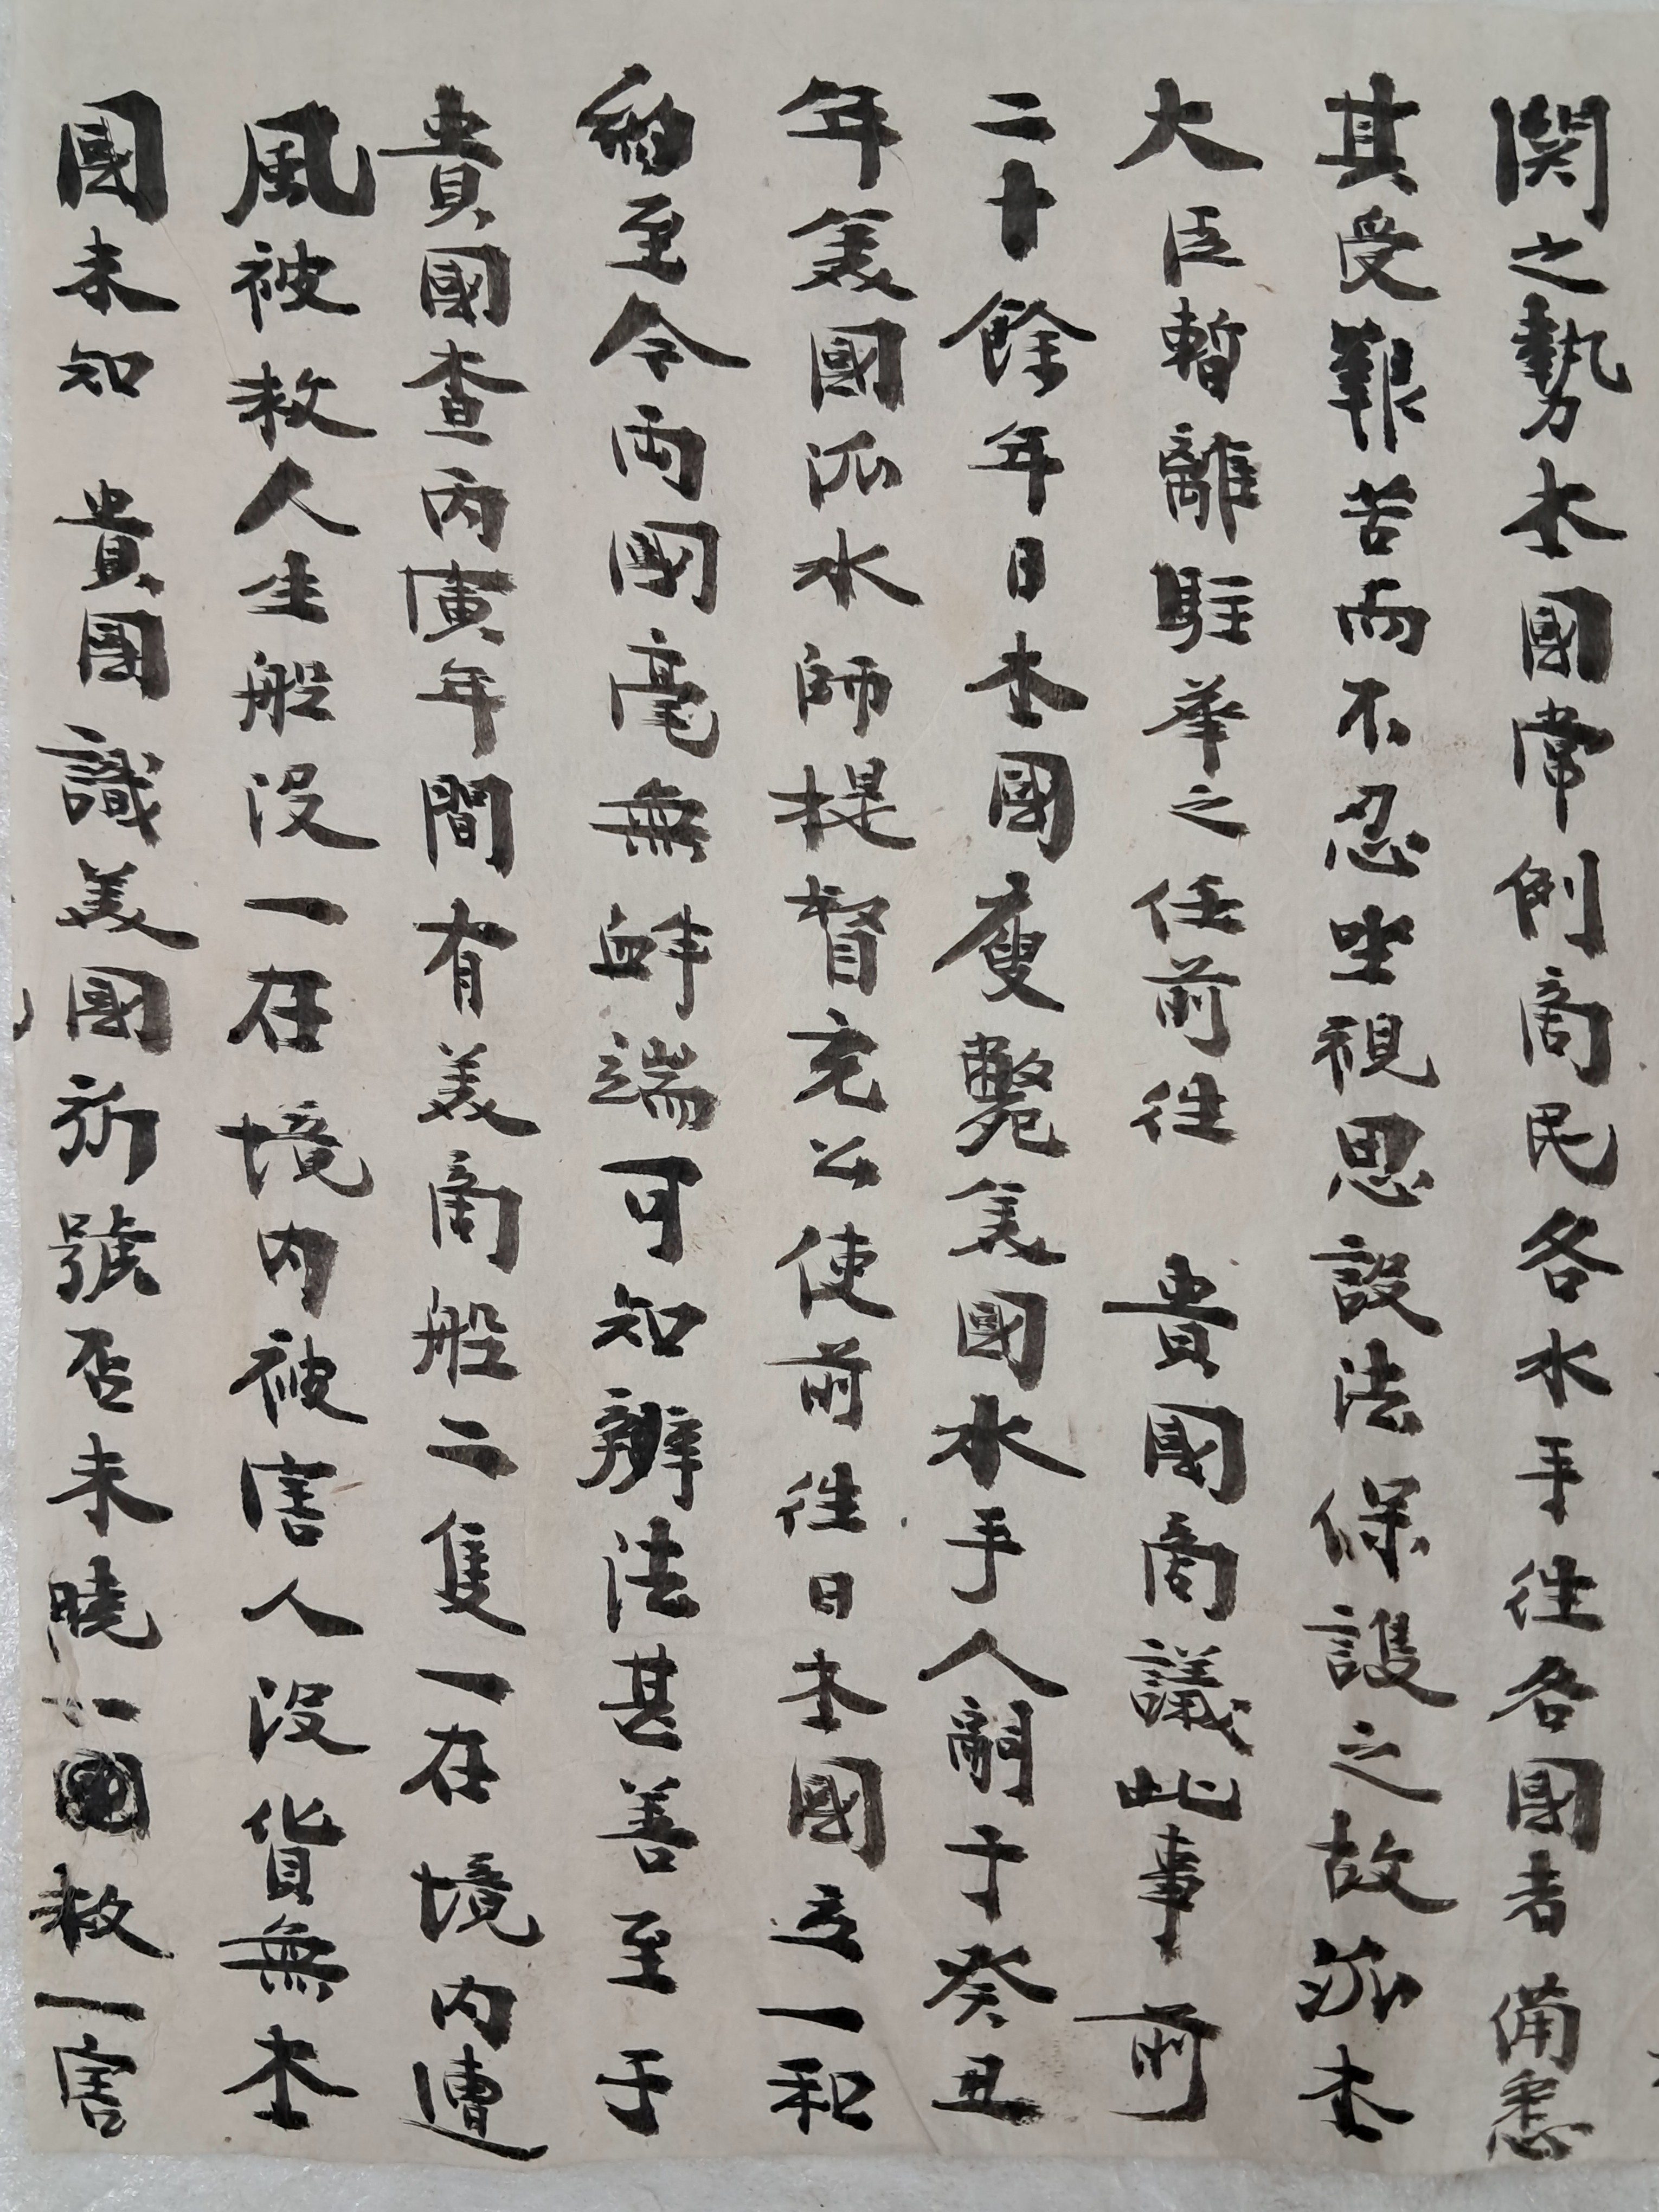 関之勢本國常倒商民各水手往各國者備悉
其受艱苦而不忍坐視思設法保護之故派本
大臣暫離駐華之任前往　貴國商議此事前
二十餘年日本國瘦斃美國水手人嗣于癸丑
年美國派水師提督充公使前往日本國立一和
約至今両國毫無衅端可知辦法甚善至于
貴國查丙寅年間有美商般二隻一在境内遭
風被救人生般没一在境内被害人没貨無本
國未知　貴國識美國旂號否未曉一救一害